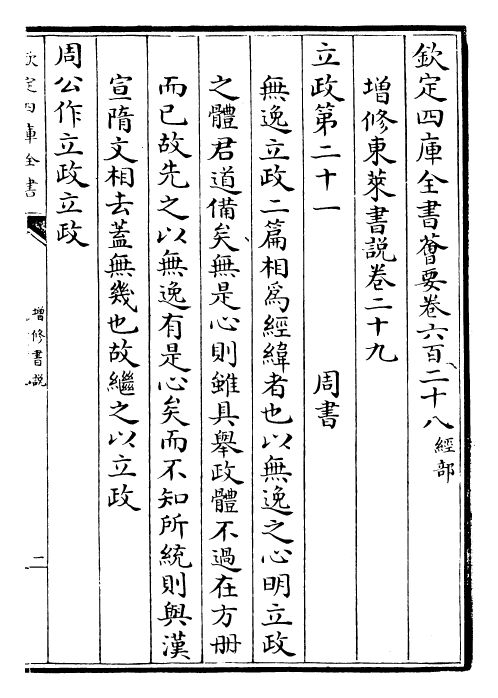 欽定四庫全書薈要卷六百二十八經部
增修東萊書說卷二十九
立政第二十一　周書
無逸立政二篇相爲經緯者也以無逸之心明立政
之體君道備矣無是心則雖具舉政體不過在方册
而已故先之以無逸有是心矣而不知所統則與漢
宣隋文相去蓋無幾也故繼之以立政
周公作立政立政
欽定四庫全書
增修書說